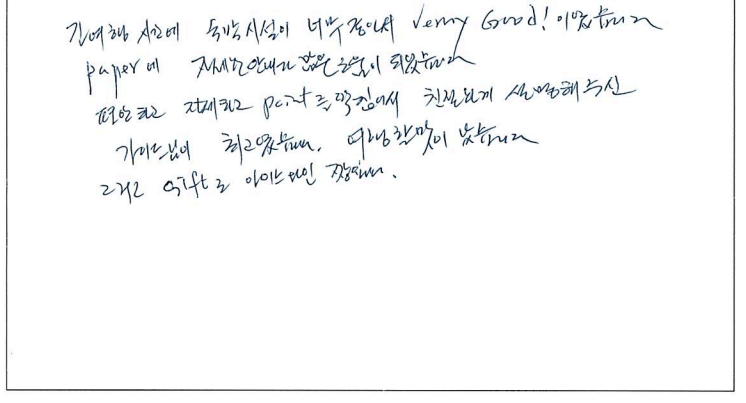 긴여행 시간에 숙박시설이 너무 좋아서 Verry Good! 이었습니다
paper에 자세한안내가 많은 도움이 되었습니다
편안하고 자세하고 point를 콕집어서 친절하게 설명해주신
가이드님이 최고였습니다. 여행할맛이 났습니다
그리고 gift로 아이스와인 짱입니다.